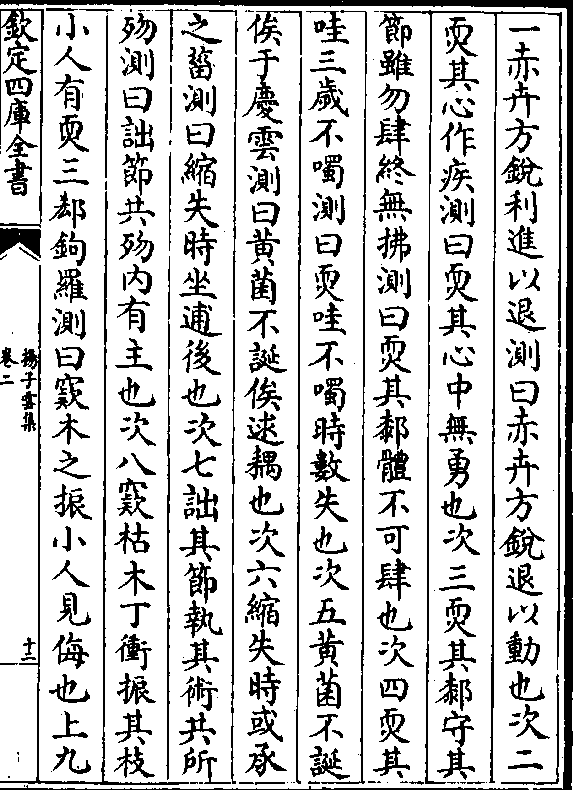 一赤卉方銳利進以退測曰赤卉方銳退以動也次二
耎其心作疾測曰耎其心中無勇也次三耎其䣛守其
節雖勿肆終無拂測曰耎其䣛體不可肆也次四耎其
哇三歲不噣測曰耎哇不噣時數失也次五黄菌不誕
俟于慶雲測曰黄菌不誕俟逑耦也次六縮失時或承
之菑測曰縮失時坐逋後也次七詘其節執其術共所
歾測曰詘節共歾内有主也次八窾枯木丁衝振其枝
小人有耎三卻鉤羅測曰窾木之振小人見侮也上九
欽定四庫全書
揚子雲集
卷二
十二